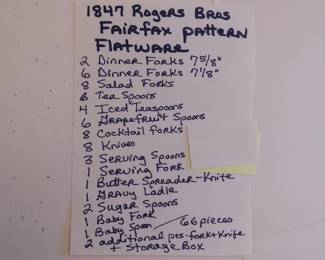 1847 Rogers Bros
Fairfax pattern
Flatware
2 Dinner Forks 7 5/8"
6 Dinner Forks 7 1/8"
8 Salad Forks
6 Tea Spoons
4 Iced Teaspoons
6 Grapefruit Spoons
8 Cocktail forks
8 Knives
3 Serving Spoons
1 Serving Fork
1 Butter Spreader-Knife
1 Gravy Ladle
2 Sugar Spoons
1 Baby Fork
1 Baby Spoon 66 pieces
2 additional pcs-fork+Knife
+ Storage Box